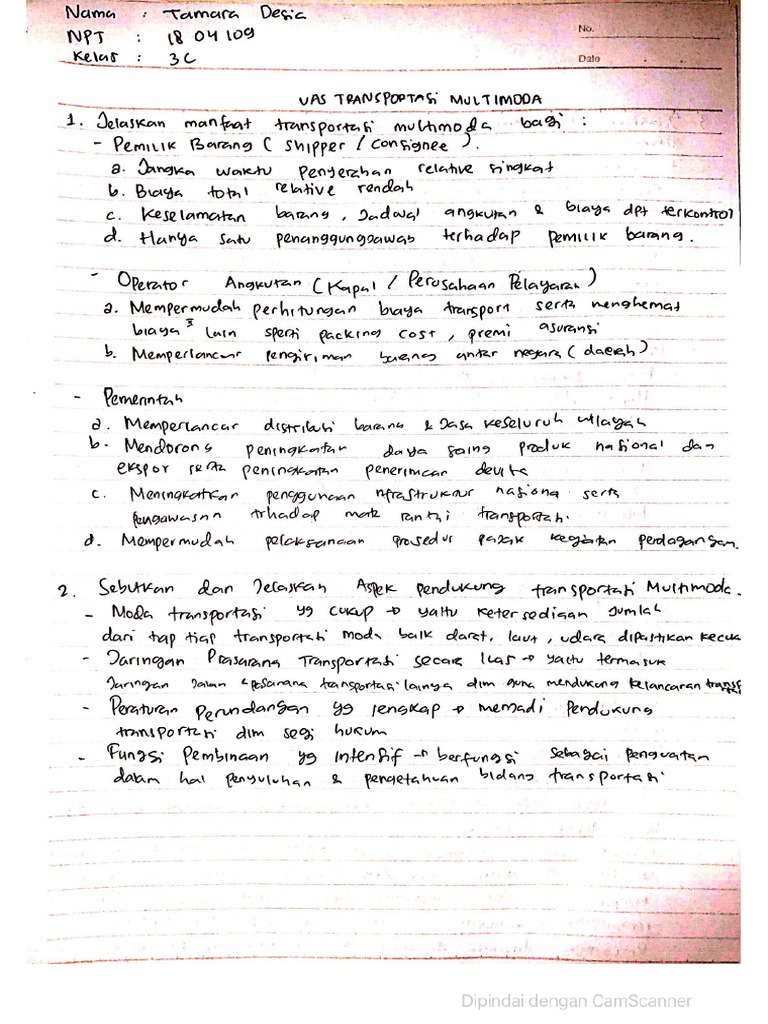 Nama : Tamara Desia
NPT : 18 04 109
Kelas : 3C
No.
Date
UAS TRANSPORTASI MULTIMODA
1. Jelaskan manfaat transportasi multimoda bagi :
- Pemilik Barang ( shipper / consignee ).
a. Jangka waktu penyerahan relative singkat
b. Biaya total relative rendah
c. Keselamatan barang, Jadwal angkutan & biaya dpt terkontrol
d. Hanya satu penanggungjawab terhadap pemilik barang.
- Operator Angkutan ( Kapal / Perusahaan Pelayaran )
a. Mempermudah perhitungan biaya transport serta menghemat
biaya² lain sperti packing cost, premi asuransi
b. Memperlancar pengiriman barang antar negara ( daerah )
- Pemerintah
a. Memperlancar distribusi barang & Jasa keseluruh wilayah
b. Mendorong peningkatan daya saing produk nasional dan
ekspor serta peningkatan penerimaan devisa
c. Meningkatkan penggunaan nfrastruktur nasiona serta
pengawasan trhadap mata rantai transportasi.
d. Mempermudah pelaksanaan prosedur pajak kegiatan perdagangan.
2. Sebutkan dan Jelaskan Aspek pendukung transportasi Multimoda.
- Moda transportasi yg cukup → yaitu ketersediaan jumlah
dari tap tiap transportasi moda baik darat, laut, udara dipastikan kecuk
- Jaringan Prasarana Transportasi secara luas → yaitu termasuk
Jaringan Jalan & prasarana transportasi lainya dlm guna mendukung kelancaran trans
- Peraturan Perundangan yg lengkap → menjadi pendukung
transportasi dlm segi hukum
- Fungsi Pembinaan yg intensif → berfungsi sebagai penguatan
dalam hal penyuluhan & pengetahuan bidang transportasi
Dipindai dengan CamScanner